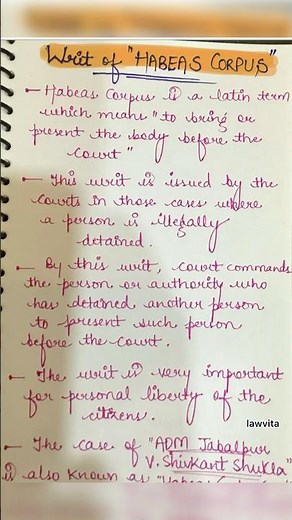 Writ of "HABEAS CORPUS"
Habeas Corpus is a latin term
which means "to bring or
present the body before the
court"
This writ is issued by the
courts in those cases where
a person is illegally
detained.
By this writ, court commands
the person or authority who
has detained another person
to present such person
before the court.
The writ is very important
for personal liberty of the
citizens.
lawvita
The case of "ADM Jabalpur
V. Shivkant Shukla"
is also known as "Habeas